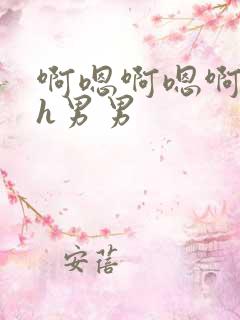 啊嗯啊嗯啊
h男男
安蓓